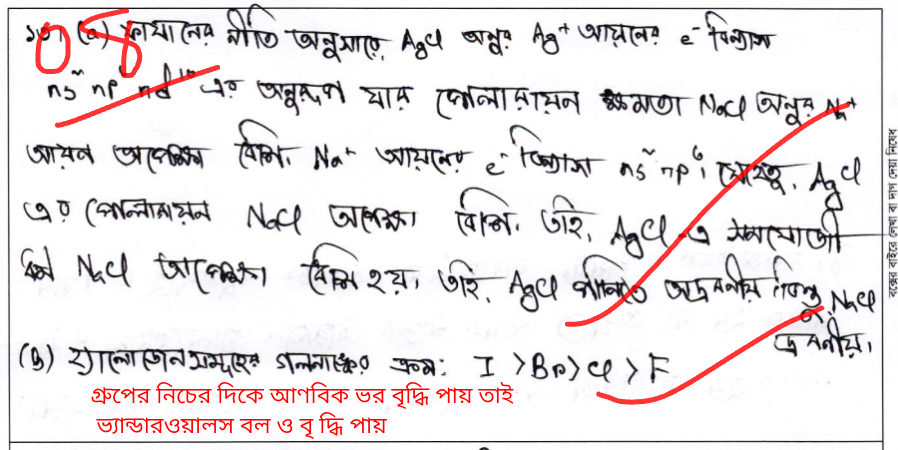 ১৩। (a) ফাযানের নীতি অনুসারে, AgCl অনুর Ag⁺ আয়নের e⁻ বিন্যাস
ns² np⁶ nd¹⁰ এর অনুরূপ যার পোলারায়ন ক্ষমতা NaCl অনুর Na⁺
আয়ন অপেক্ষা বেশি। Na⁺ আয়নের e⁻ বিন্যাস ns² np⁶। যেহেতু, AgCl
এর পোলারায়ন NaCl অপেক্ষা বেশি, তাই, AgCl এ সমযোজী
ধর্ম NaCl অপেক্ষা বেশি হয়। তাই, AgCl পানিতে অদ্রবনীয় কিন্তু NaCl
দ্রবনীয়।
(b) হ্যালোজেনসমূহের গলনাঙ্কের ক্রম: I > Br > Cl > F
গ্রুপের নিচের দিকে আণবিক ভর বৃদ্ধি পায় তাই
ভ্যান্ডারওয়ালস বল ও বৃ দ্ধি পায়
বক্সের বাইরে লেখা বা দাগ দেয়া নিষেধ